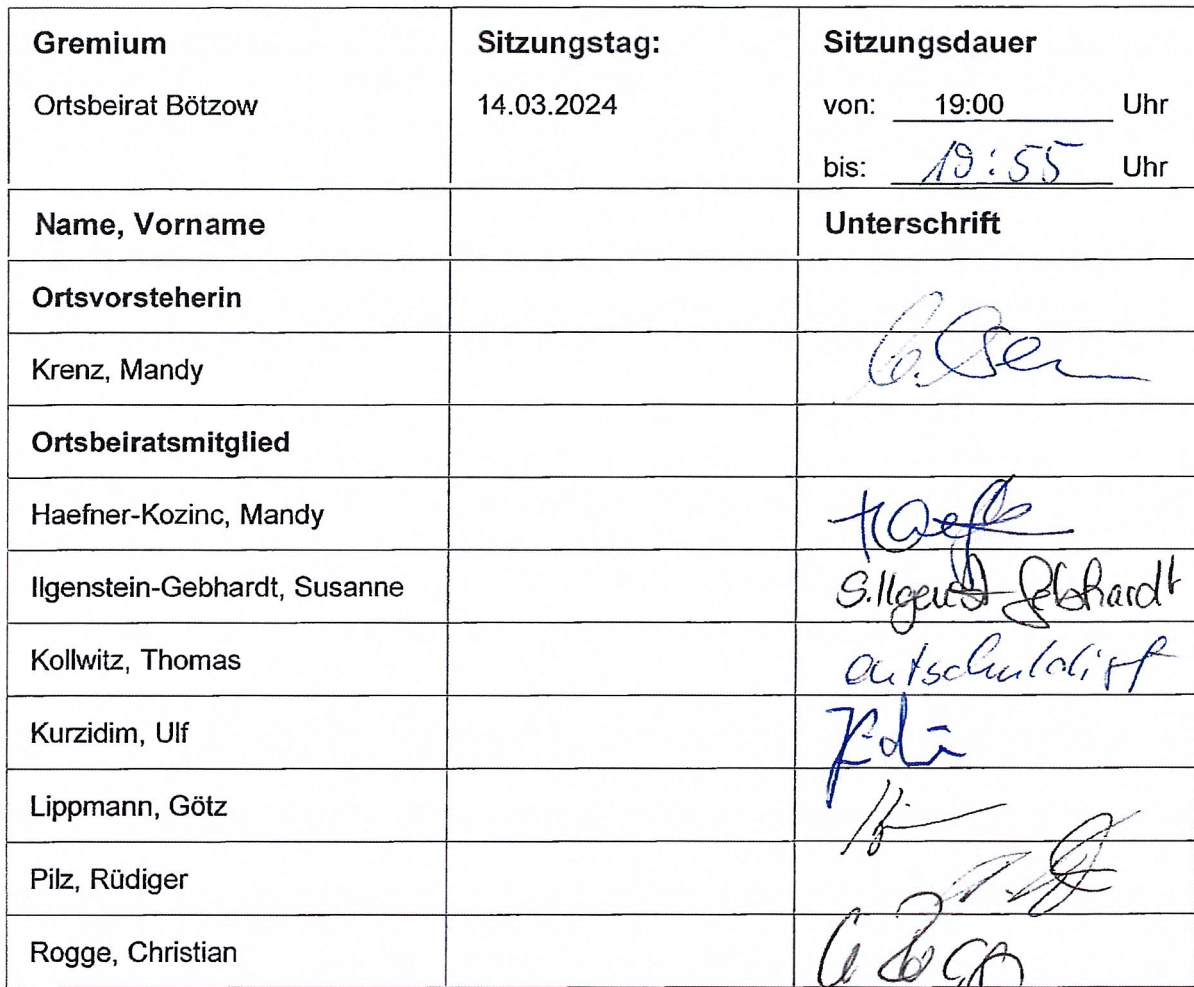 Gremium Sitzungstag: Sitzungsdauer
Ortsbeirat Bötzow 14.03.2024 von: 19:00 Uhr
bis: 19:55 Uhr
Name, Vorname Unterschrift
Ortsvorsteherin
Krenz, Mandy
Ortsbeiratsmitglied
Haefner-Kozinc, Mandy
Ilgenstein-Gebhardt, Susanne S. Ilgenst-Gebhardt
Kollwitz, Thomas entschuldigt
Kurzidim, Ulf
Lippmann, Götz
Pilz, Rüdiger
Rogge, Christian